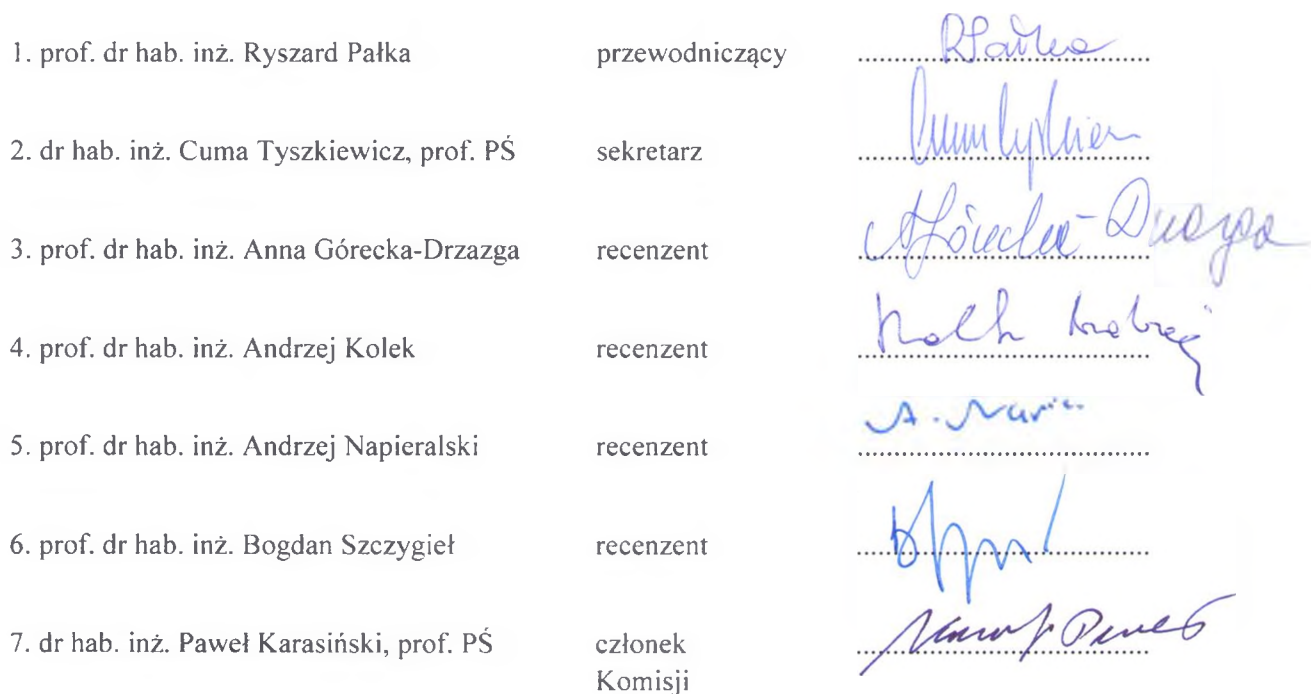 1. prof. dr hab. inż. Ryszard Pałka przewodniczący
2. dr hab. inż. Cuma Tyszkiewicz, prof. PŚ sekretarz
3. prof. dr hab. inż. Anna Górecka-Drzazga recenzent
4. prof. dr hab. inż. Andrzej Kolek recenzent
5. prof. dr hab. inż. Andrzej Napieralski recenzent
6. prof. dr hab. inż. Bogdan Szczygieł recenzent
7. dr hab. inż. Paweł Karasiński, prof. PŚ członek
Komisji